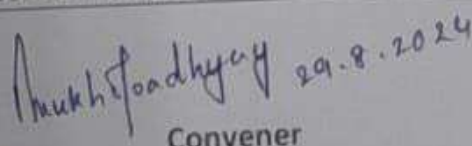 Amukhopadhyay 29.8.2024
Convener